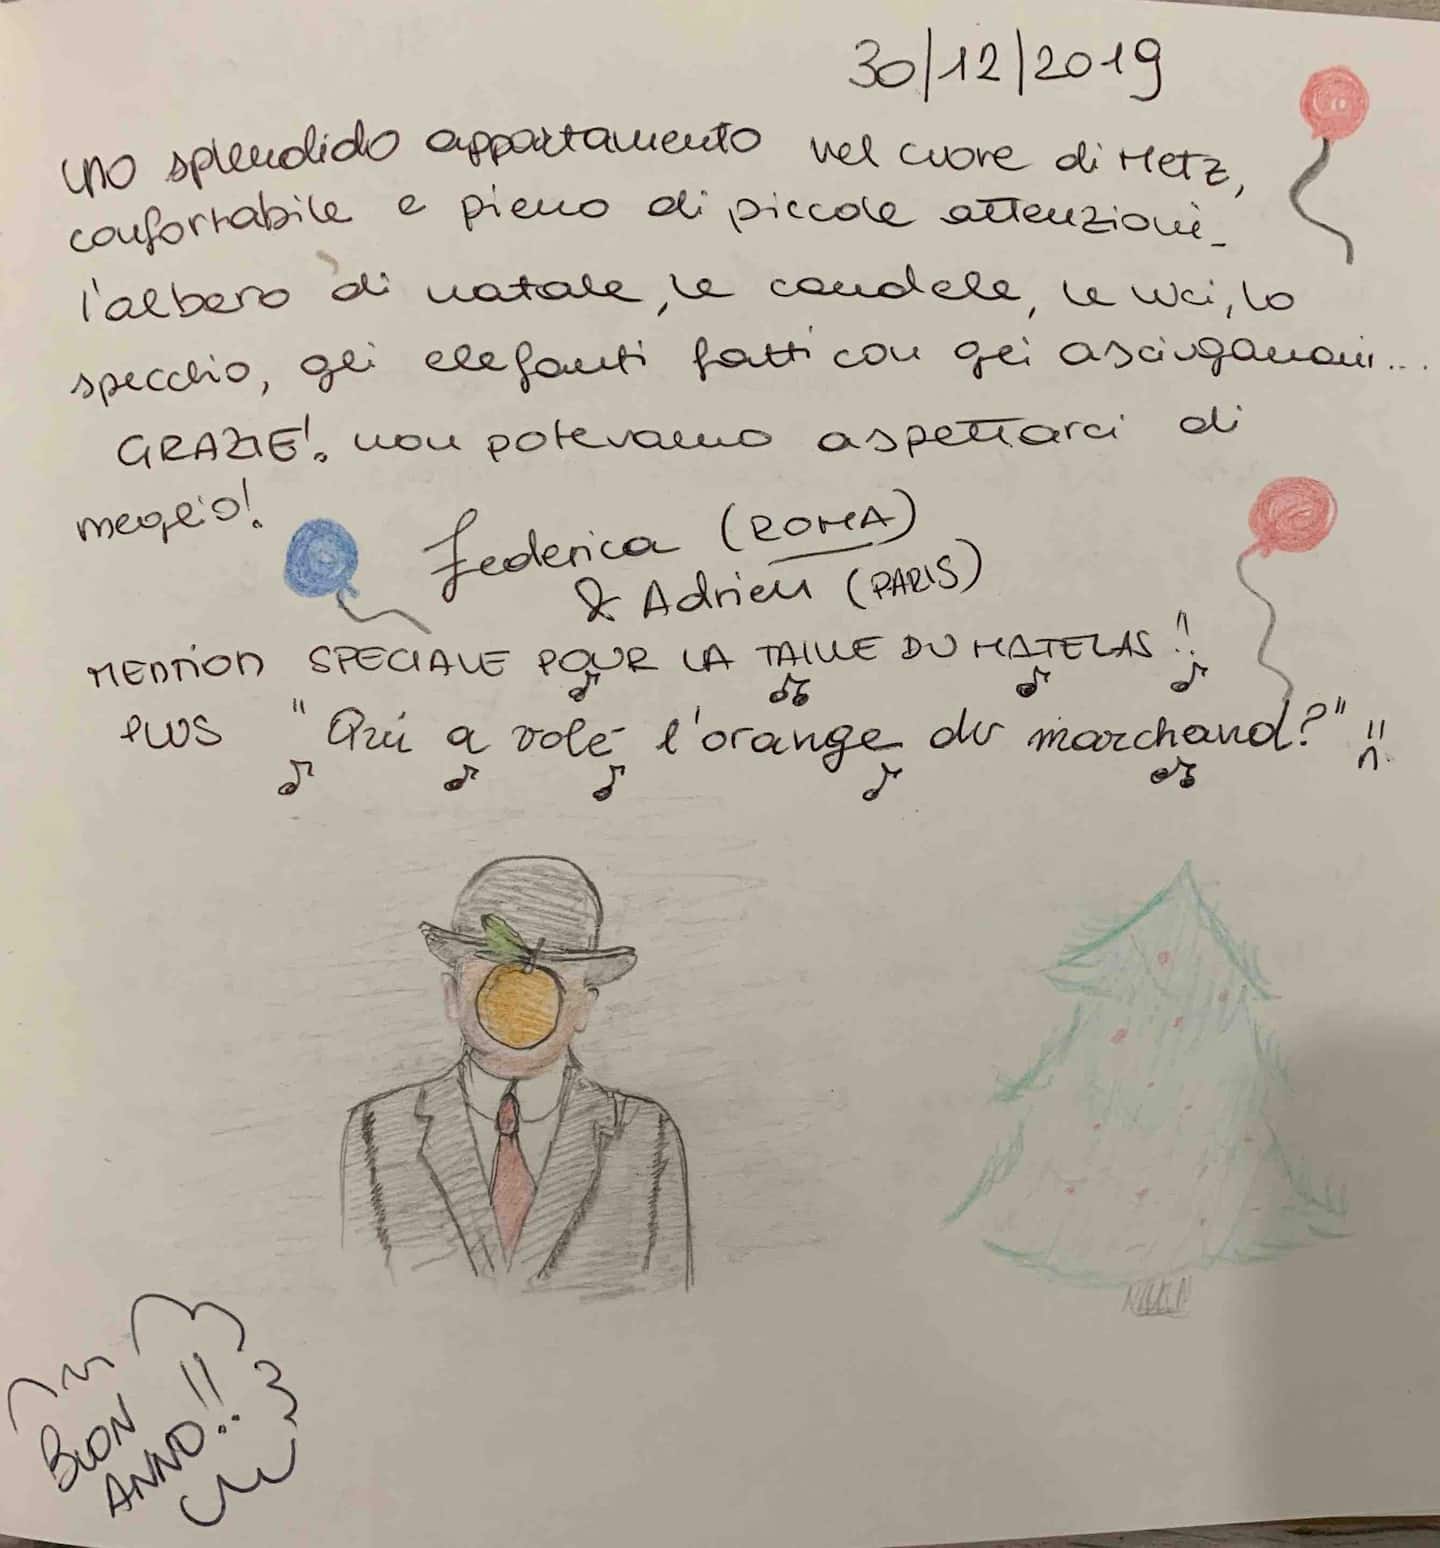 30/12/2019
uno splendido appartamento nel cuore di Metz,
confortabile e pieno di piccole attenzioni.
l'albero di natale, le candele, le luci, lo
specchio, gli elefanti fatti con gli asciugamani...
GRAZIE! non potevamo aspettarci di
meglio!
Federica (ROMA)
& Adrien (PARIS)
MENTION SPECIALE POUR LA TAILLE DU MATELAS!!
PLUS "Qui a volé l'orange du marchand?"!!
BUON
ANNO!!